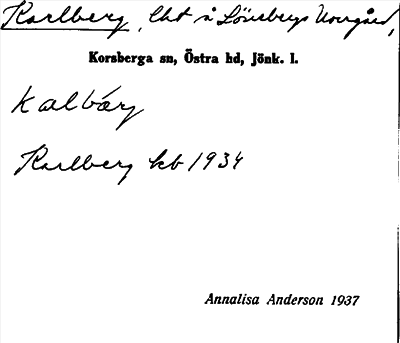 Karlberg, lht å Lönsbergs Norrgård,
Korsberga sn, Östra hd, Jönk. l.
kalbärj
Karlberg kb 1934
Annalisa Anderson 1937